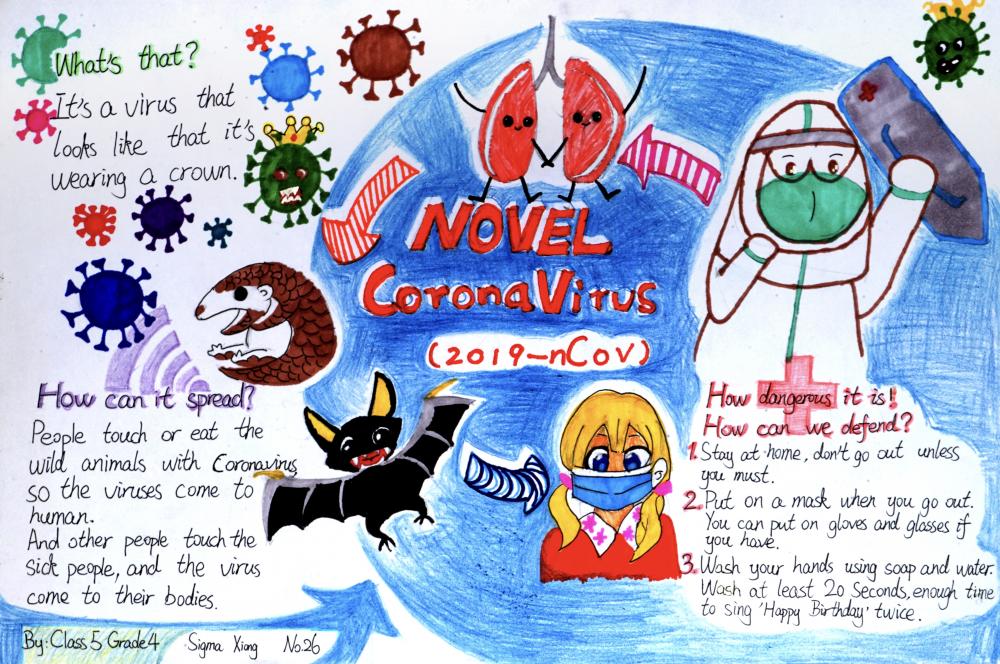 What's that?
It's a virus that
looks like that it's
wearing a crown.
NOVEL
CoronaVirus
(2019-nCoV)
How can it spread?
People touch or eat the
wild animals with Coronavirus
so the viruses come to
human.
And other people touch the
sick people, and the virus
come to their bodies.
How dangerous it is!
How can we defend?
1. Stay at home, don't go out unless
you must.
2. Put on a mask when you go out.
You can put on gloves and glasses if
you have.
3. Wash your hands using soap and water.
Wash at least 20 Seconds, enough time
to sing 'Happy Birthday' twice.
By: Class 5 Grade 4 Sigma Xiang No.26